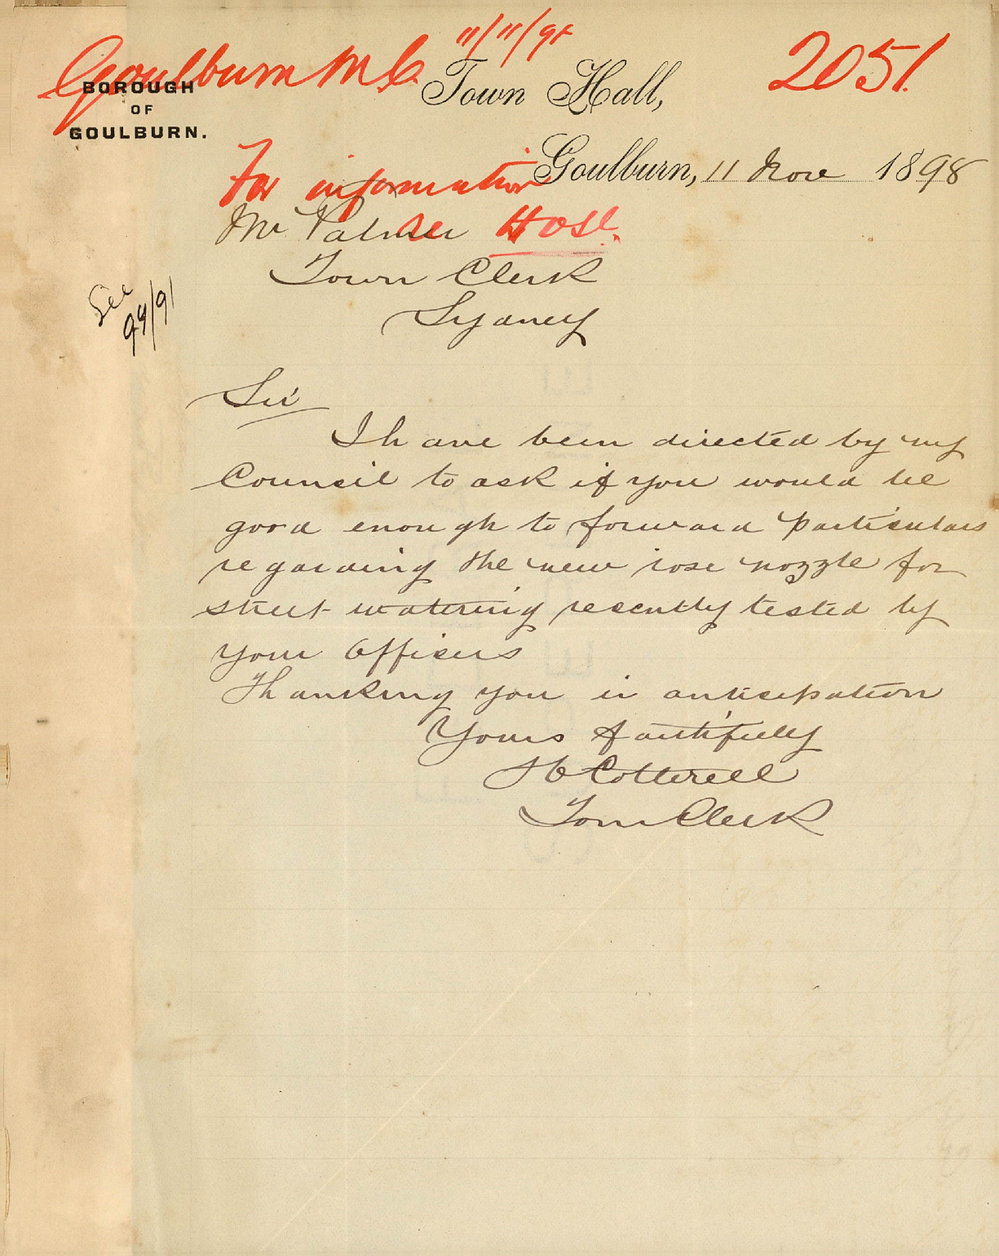 Goulburn M.C. 11/11/98
2051.
BOROUGH
OF
GOULBURN.
Town Hall,
Goulburn, 11 Nov 1898
For information
re Hose.
Mr Palmer
Town Clerk
Sydney
See
99/91
Sir
I have been directed by my
Council to ask if you would be
good enough to forward particulars
regarding the new rose nozzle for
street watering recently tested by
your Officers
Thanking you in anticipation
Yours faithfully
Cotterell
Town Clerk